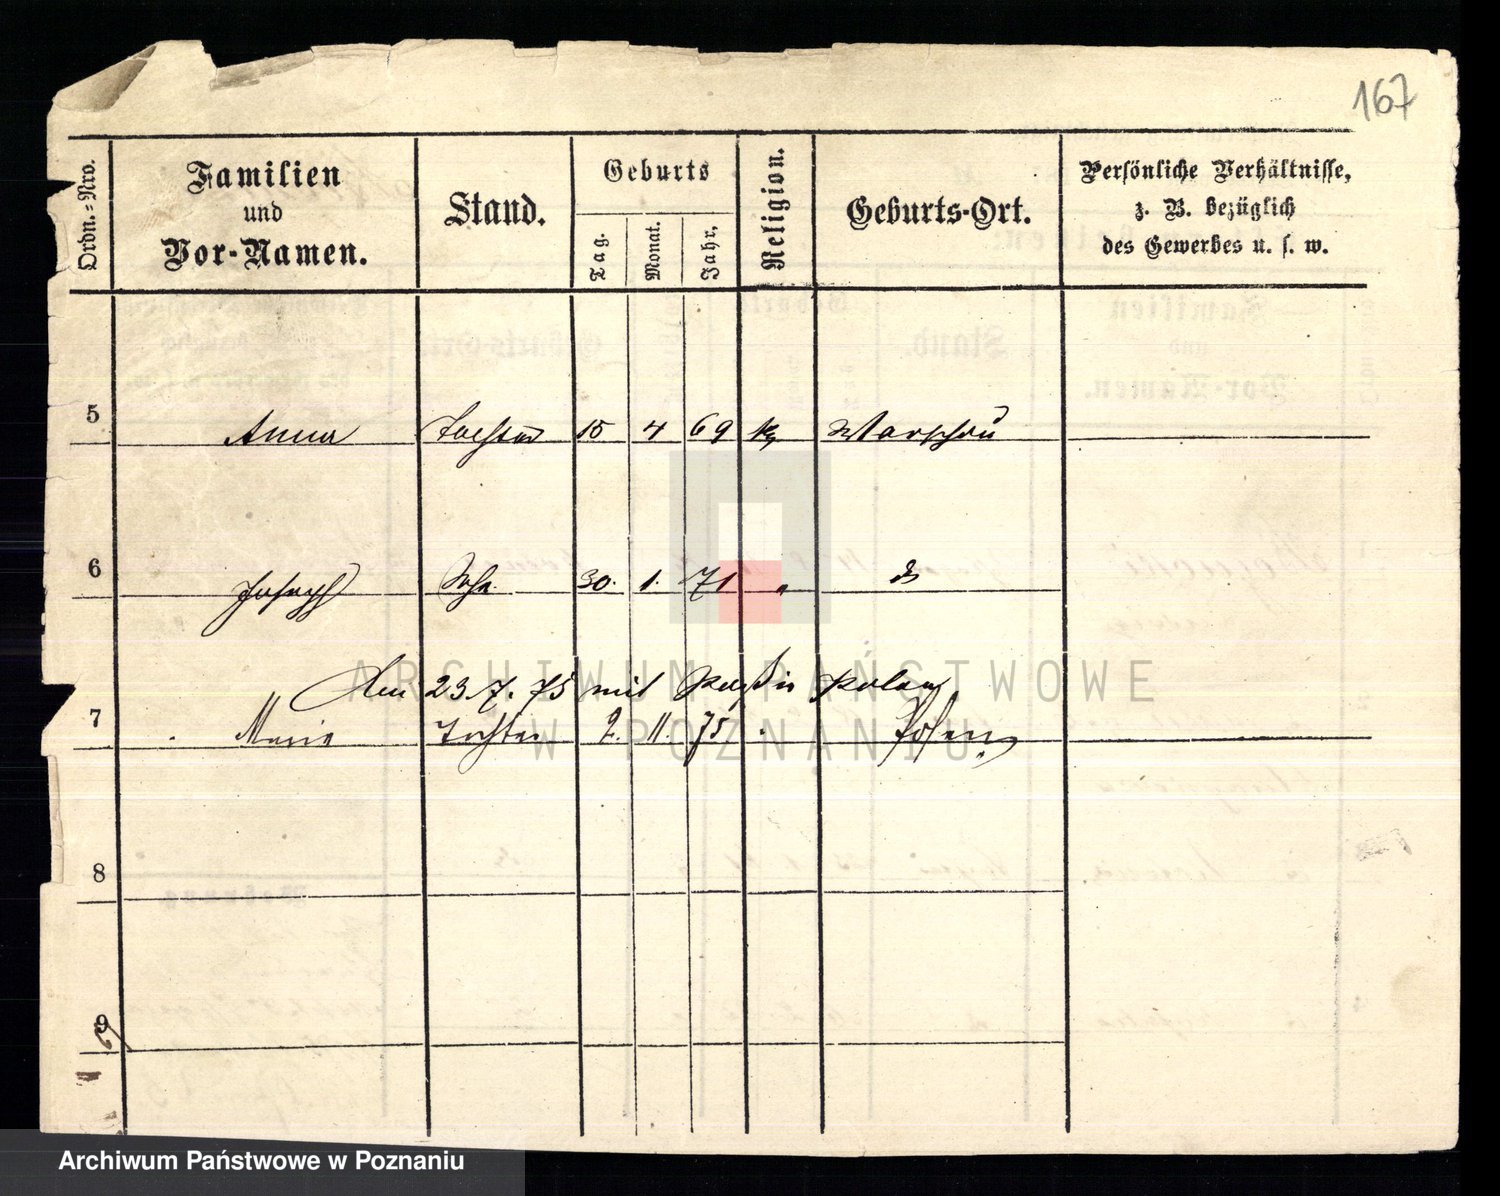 167
Ordn.-Nro.
Familien
und
Vor-Namen.
Stand.
Geburts
Tag.
Monat.
Jahr.
Religion.
Geburts-Ort.
Persönliche Verhältnisse,
z. B. bezüglich
des Gewerbes u. s. w.
5 Anna Tochter 15 4 69 k Warschau
6 Joseph Sohn 30. 1. 71 " do
Am 23.7.75 mit Paß in Polen
7 Marie Tochter 2. 11. 75 Posen
8
9
ARCHIWUM PAŃSTWOWE
W POZNANIU
Archiwum Państwowe w Poznaniu